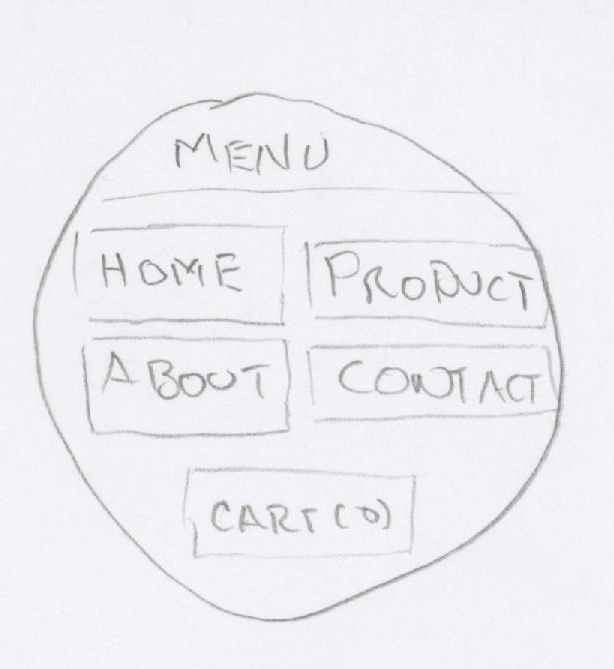 MENU
HOME PRODUCT
ABOUT CONTACT
CART (0)